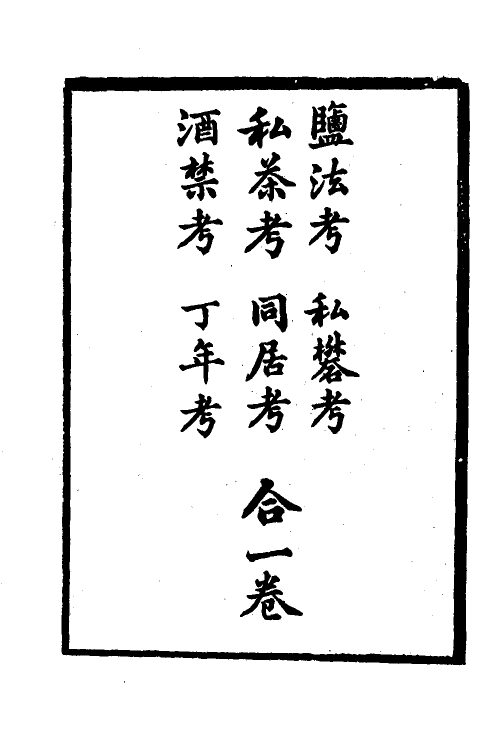 鹽法考　私礬考
私茶考　同居考　合一卷
酒禁考　丁年考